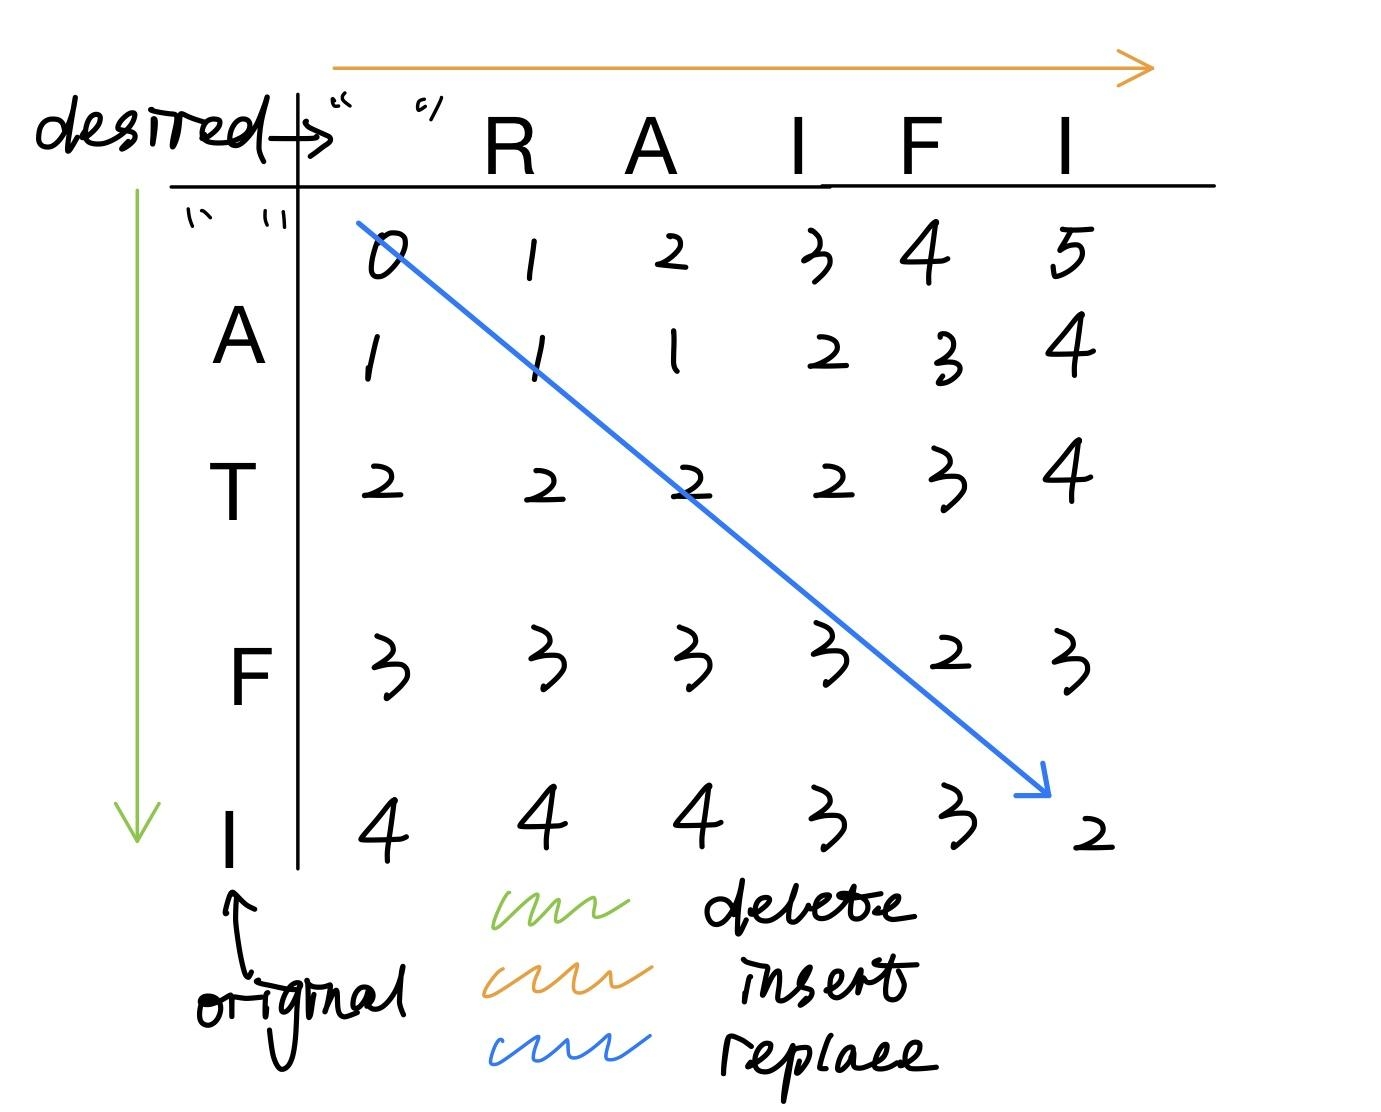 desired → " " R A I F I
" " 0 1 2 3 4 5
A 1 1 1 2 3 4
T 2 2 2 2 3 4
F 3 3 3 3 2 3
I 4 4 4 3 3 2
delete
original insert
replace